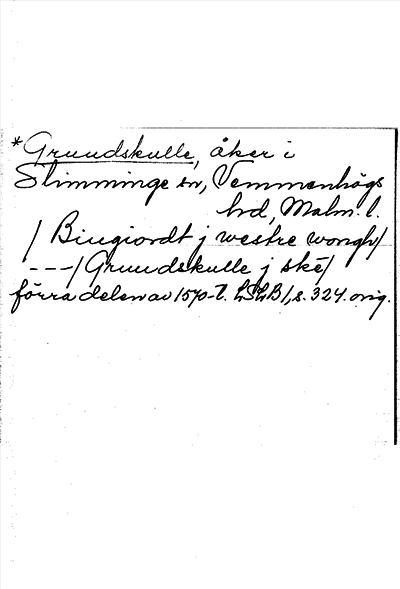 *Grundskulle, åker i
Slimminge sn, Vemmenhögs
hrd, Malm. l.
/ Biugiordt j westre wongh/
---/ Grundskulle j skē/
förra delen av 1570-t. LSLB 1, s. 324. orig.